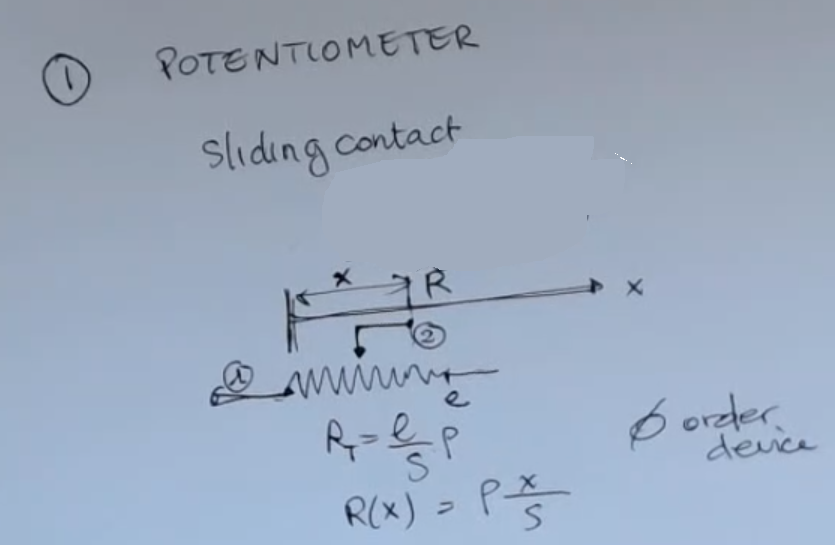 ① POTENTIOMETER
Sliding contact
x R
x
②
①
e
R_T = l/S ρ
∅ order device
R(x) = ρ x/S